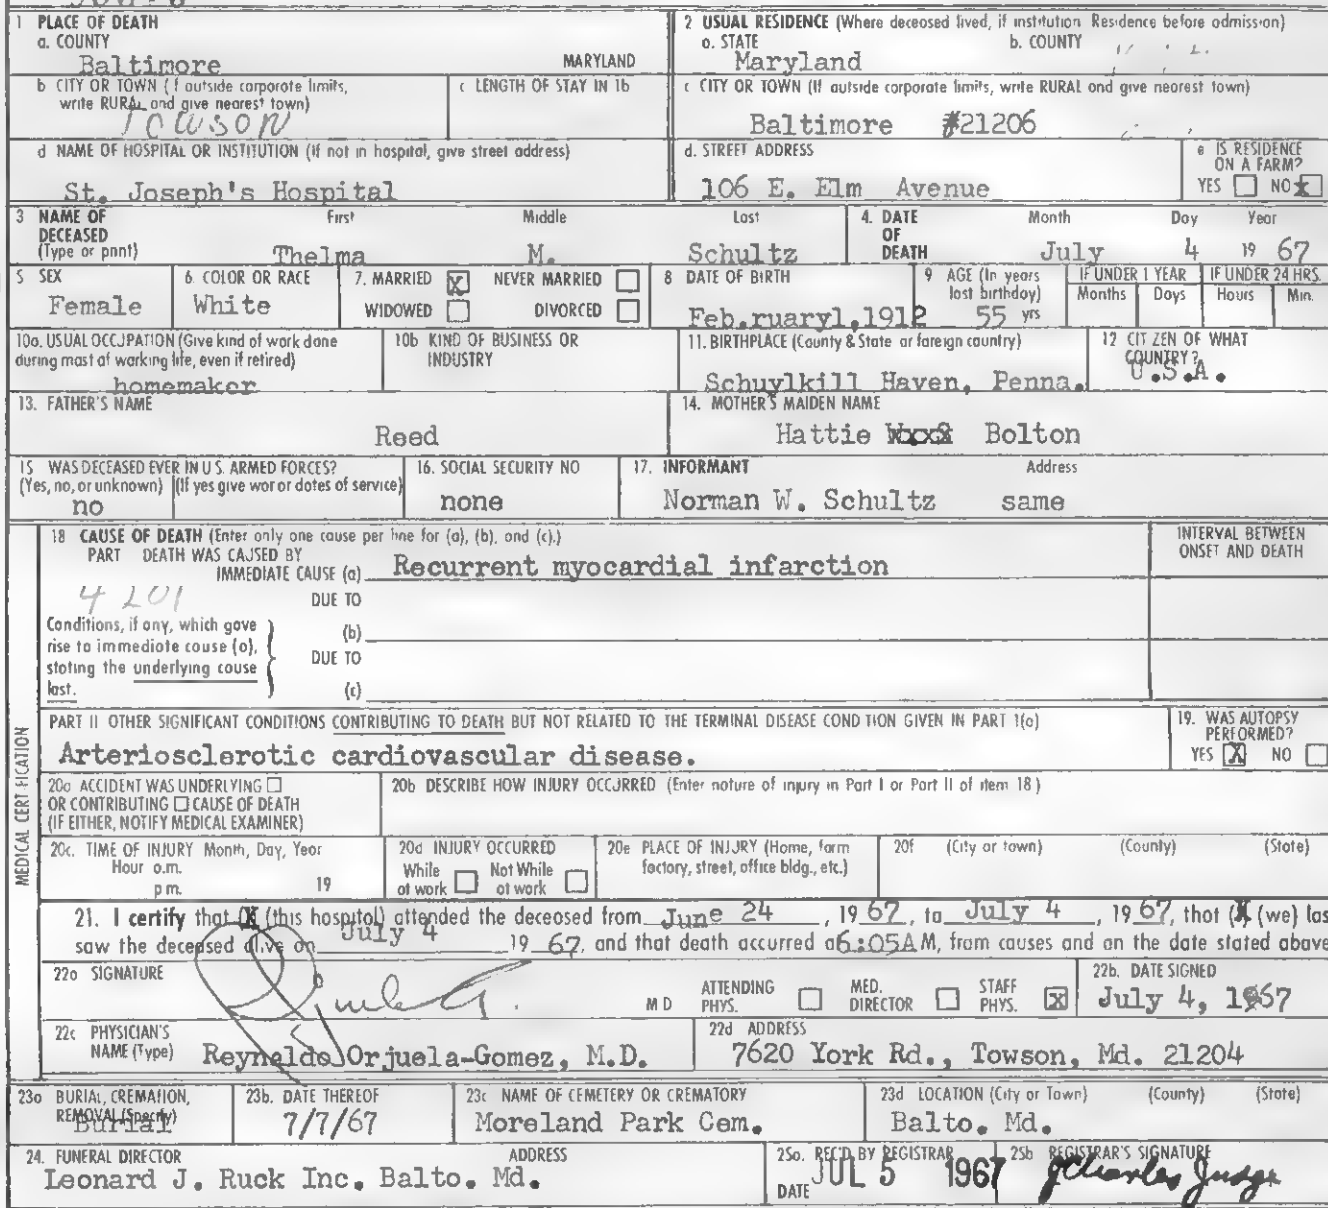 1 PLACE OF DEATH
a. COUNTY
Baltimore MARYLAND
2 USUAL RESIDENCE (Where deceased lived, if institution Residence before admission)
a. STATE b. COUNTY
Maryland
b CITY OR TOWN (If outside corporate limits, write RURAL and give nearest town)
Towson
c LENGTH OF STAY IN 1b
c CITY OR TOWN (If outside corporate limits, write RURAL and give nearest town)
Baltimore #21206
d NAME OF HOSPITAL OR INSTITUTION (If not in hospital, give street address)
St. Joseph's Hospital
d. STREET ADDRESS
106 E. Elm Avenue
e IS RESIDENCE ON A FARM?
YES NO x
3 NAME OF DECEASED (Type or print)
First Middle Last
Thelma M. Schultz
4. DATE OF DEATH
Month Day Year
July 4 19 67
5 SEX
Female
6. COLOR OR RACE
White
7. MARRIED X NEVER MARRIED
WIDOWED DIVORCED
8 DATE OF BIRTH
Feb.ruary1,1912
9 AGE (In years last birthday)
55 yrs
IF UNDER 1 YEAR IF UNDER 24 HRS.
Months Days Hours Min.
10a. USUAL OCCUPATION (Give kind of work done during most of working life, even if retired)
homemaker
10b KIND OF BUSINESS OR INDUSTRY
11. BIRTHPLACE (County & State or foreign country)
Schuylkill Haven, Penna.
12 CITIZEN OF WHAT COUNTRY?
U.S.A.
13. FATHER'S NAME
Reed
14. MOTHER'S MAIDEN NAME
Hattie Bolton
15 WAS DECEASED EVER IN U S. ARMED FORCES?
(Yes, no, or unknown) (If yes give war or dates of service)
no
16. SOCIAL SECURITY NO
none
17. INFORMANT Address
Norman W. Schultz same
18 CAUSE OF DEATH (Enter only one cause per line for (a), (b), and (c).)
INTERVAL BETWEEN ONSET AND DEATH
PART DEATH WAS CAUSED BY
IMMEDIATE CAUSE (a) Recurrent myocardial infarction
4201
DUE TO
Conditions, if any, which gave rise to immediate cause (a), stating the underlying cause last.
(b)
DUE TO
(c)
MEDICAL CERTIFICATION
PART II OTHER SIGNIFICANT CONDITIONS CONTRIBUTING TO DEATH BUT NOT RELATED TO THE TERMINAL DISEASE CONDITION GIVEN IN PART 1(a)
Arteriosclerotic cardiovascular disease.
19. WAS AUTOPSY PERFORMED?
YES X NO
20a ACCIDENT WAS UNDERLYING
OR CONTRIBUTING CAUSE OF DEATH
(IF EITHER, NOTIFY MEDICAL EXAMINER)
20b DESCRIBE HOW INJURY OCCURRED (Enter nature of injury in Part I or Part II of item 18)
20c. TIME OF INJURY Month, Day, Year
Hour a.m.
p m. 19
20d INJURY OCCURRED
While at work Not While at work
20e PLACE OF INJURY (Home, farm factory, street, office bldg., etc.)
20f (City or town) (County) (State)
21. I certify that (X (this hospital) attended the deceased from June 24, 19 67, to July 4, 19 67, that (X (we) las
saw the deceased alive on July 4 19 67, and that death occurred a6:05A M, from causes and on the date stated above
22a SIGNATURE
M D ATTENDING PHYS. MED. DIRECTOR STAFF PHYS. X
22b. DATE SIGNED
July 4, 1967
22c PHYSICIAN'S NAME (Type)
Reynaldo Orjuela-Gomez, M.D.
22d ADDRESS
7620 York Rd., Towson, Md. 21204
23a BURIAL, CREMATION, REMOVAL (Specify)
Burial
23b. DATE THEREOF
7/7/67
23c NAME OF CEMETERY OR CREMATORY
Moreland Park Cem.
23d LOCATION (City or Town) (County) (State)
Balto. Md.
24. FUNERAL DIRECTOR ADDRESS
Leonard J. Ruck Inc. Balto. Md.
25a. REC'D BY REGISTRAR
DATE JUL 5 1967
25b REGISTRAR'S SIGNATURE
J Charles Judge